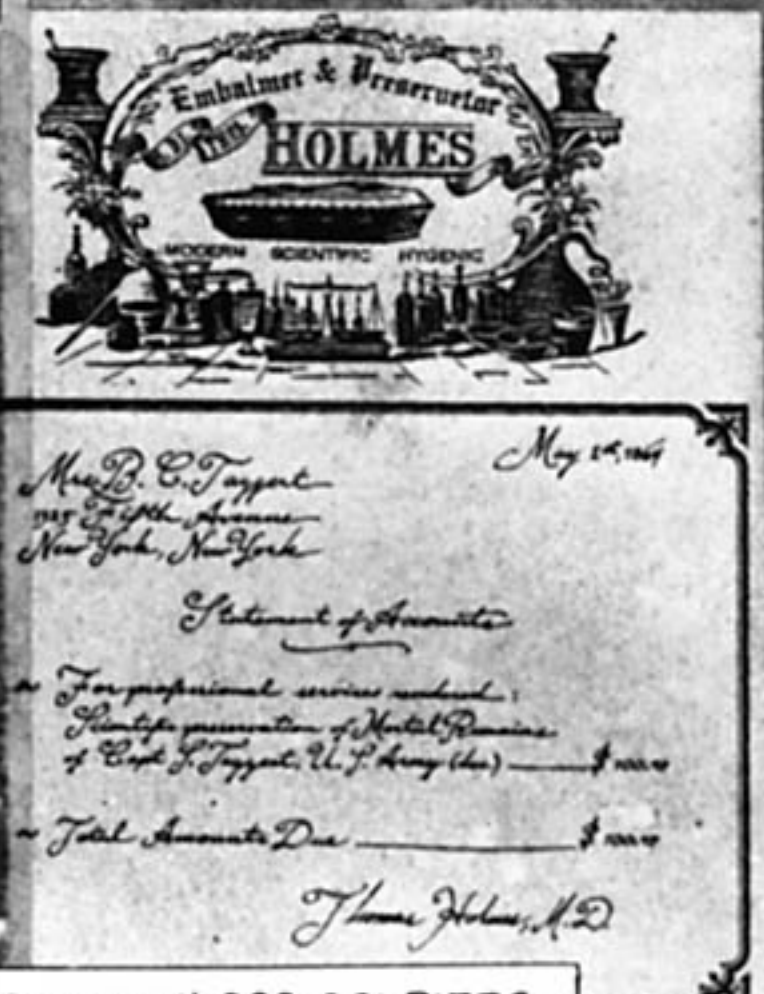 Embalmer & Preservator
HOLMES
MODERN SCIENTIFIC HYGENIC
May 2nd,
Mrs B. C. Taggert
Fifth Avenue
New York, New York
Statement of Accounts
For professional services rendered:
Scientific preservation of Mortal Remains
of Capt S. Taggert, U.S. Army (dec) $ 100.00
Total Amounts Due $ 100.00
Thomas Holmes, M.D.